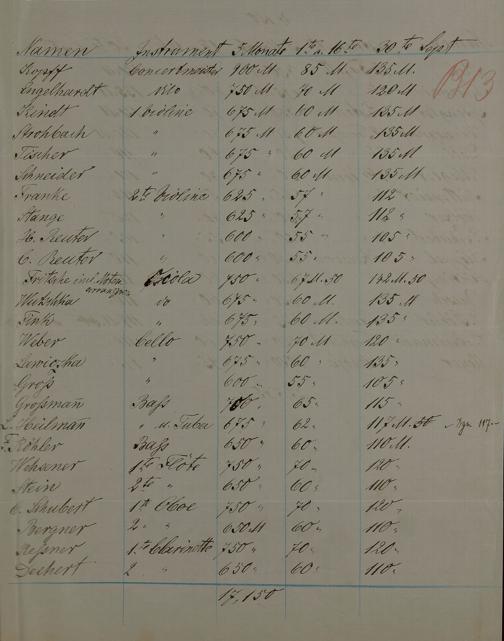 Namen Instrument 5 Monate 1te u. 16te 30te Sept
B13
Kopff Concertmeister 900 M 85 M. 135 M.
Engelhardt 750 M 70 M 120 M
Kindt 1 Violine 675 M 60 M 135 M
Strohbach " 675 M 60 M 135 M
Fischer " 675 " 60 M 135 M
Schneider " 675 " 60 M 135 M
Franke 2te Violine 625 " 57 " 112 "
Stange " 625 " 57 " 112 "
H. Reuter " 600 " 55 " 105 "
C. Reuter " 600 " 55 " 105 "
Fritzsche incl. Noten Viola 750 " 67 M. 50 142 M. 50
arrangiren
do 675 " 60 M. 135 M
Fink " 675 " 60 M. 135
Weber Cello 750 " 70 M 120 "
" 675 " 60 " 135 "
Groß " 600 " 55 " 105 "
Großmann Baß 65 " 115 "
L. Heilmann " u. Tuba 675 " 62 " 117 M. 50
F. Köhler Baß 650 " 60 " 110 M.
1te Flöte 750 " 70 " 120 "
Stein 2te " 650 " 60 " 110 "
C. Schubert 1te Oboe 750 " 70 " 120 "
Bergner 2 " " 650 M 60 " 110 "
Reßner 1te Clarinette 750 " 70 " 120 "
Dechert 2 " " 650 " 60 " 110 "
17,150